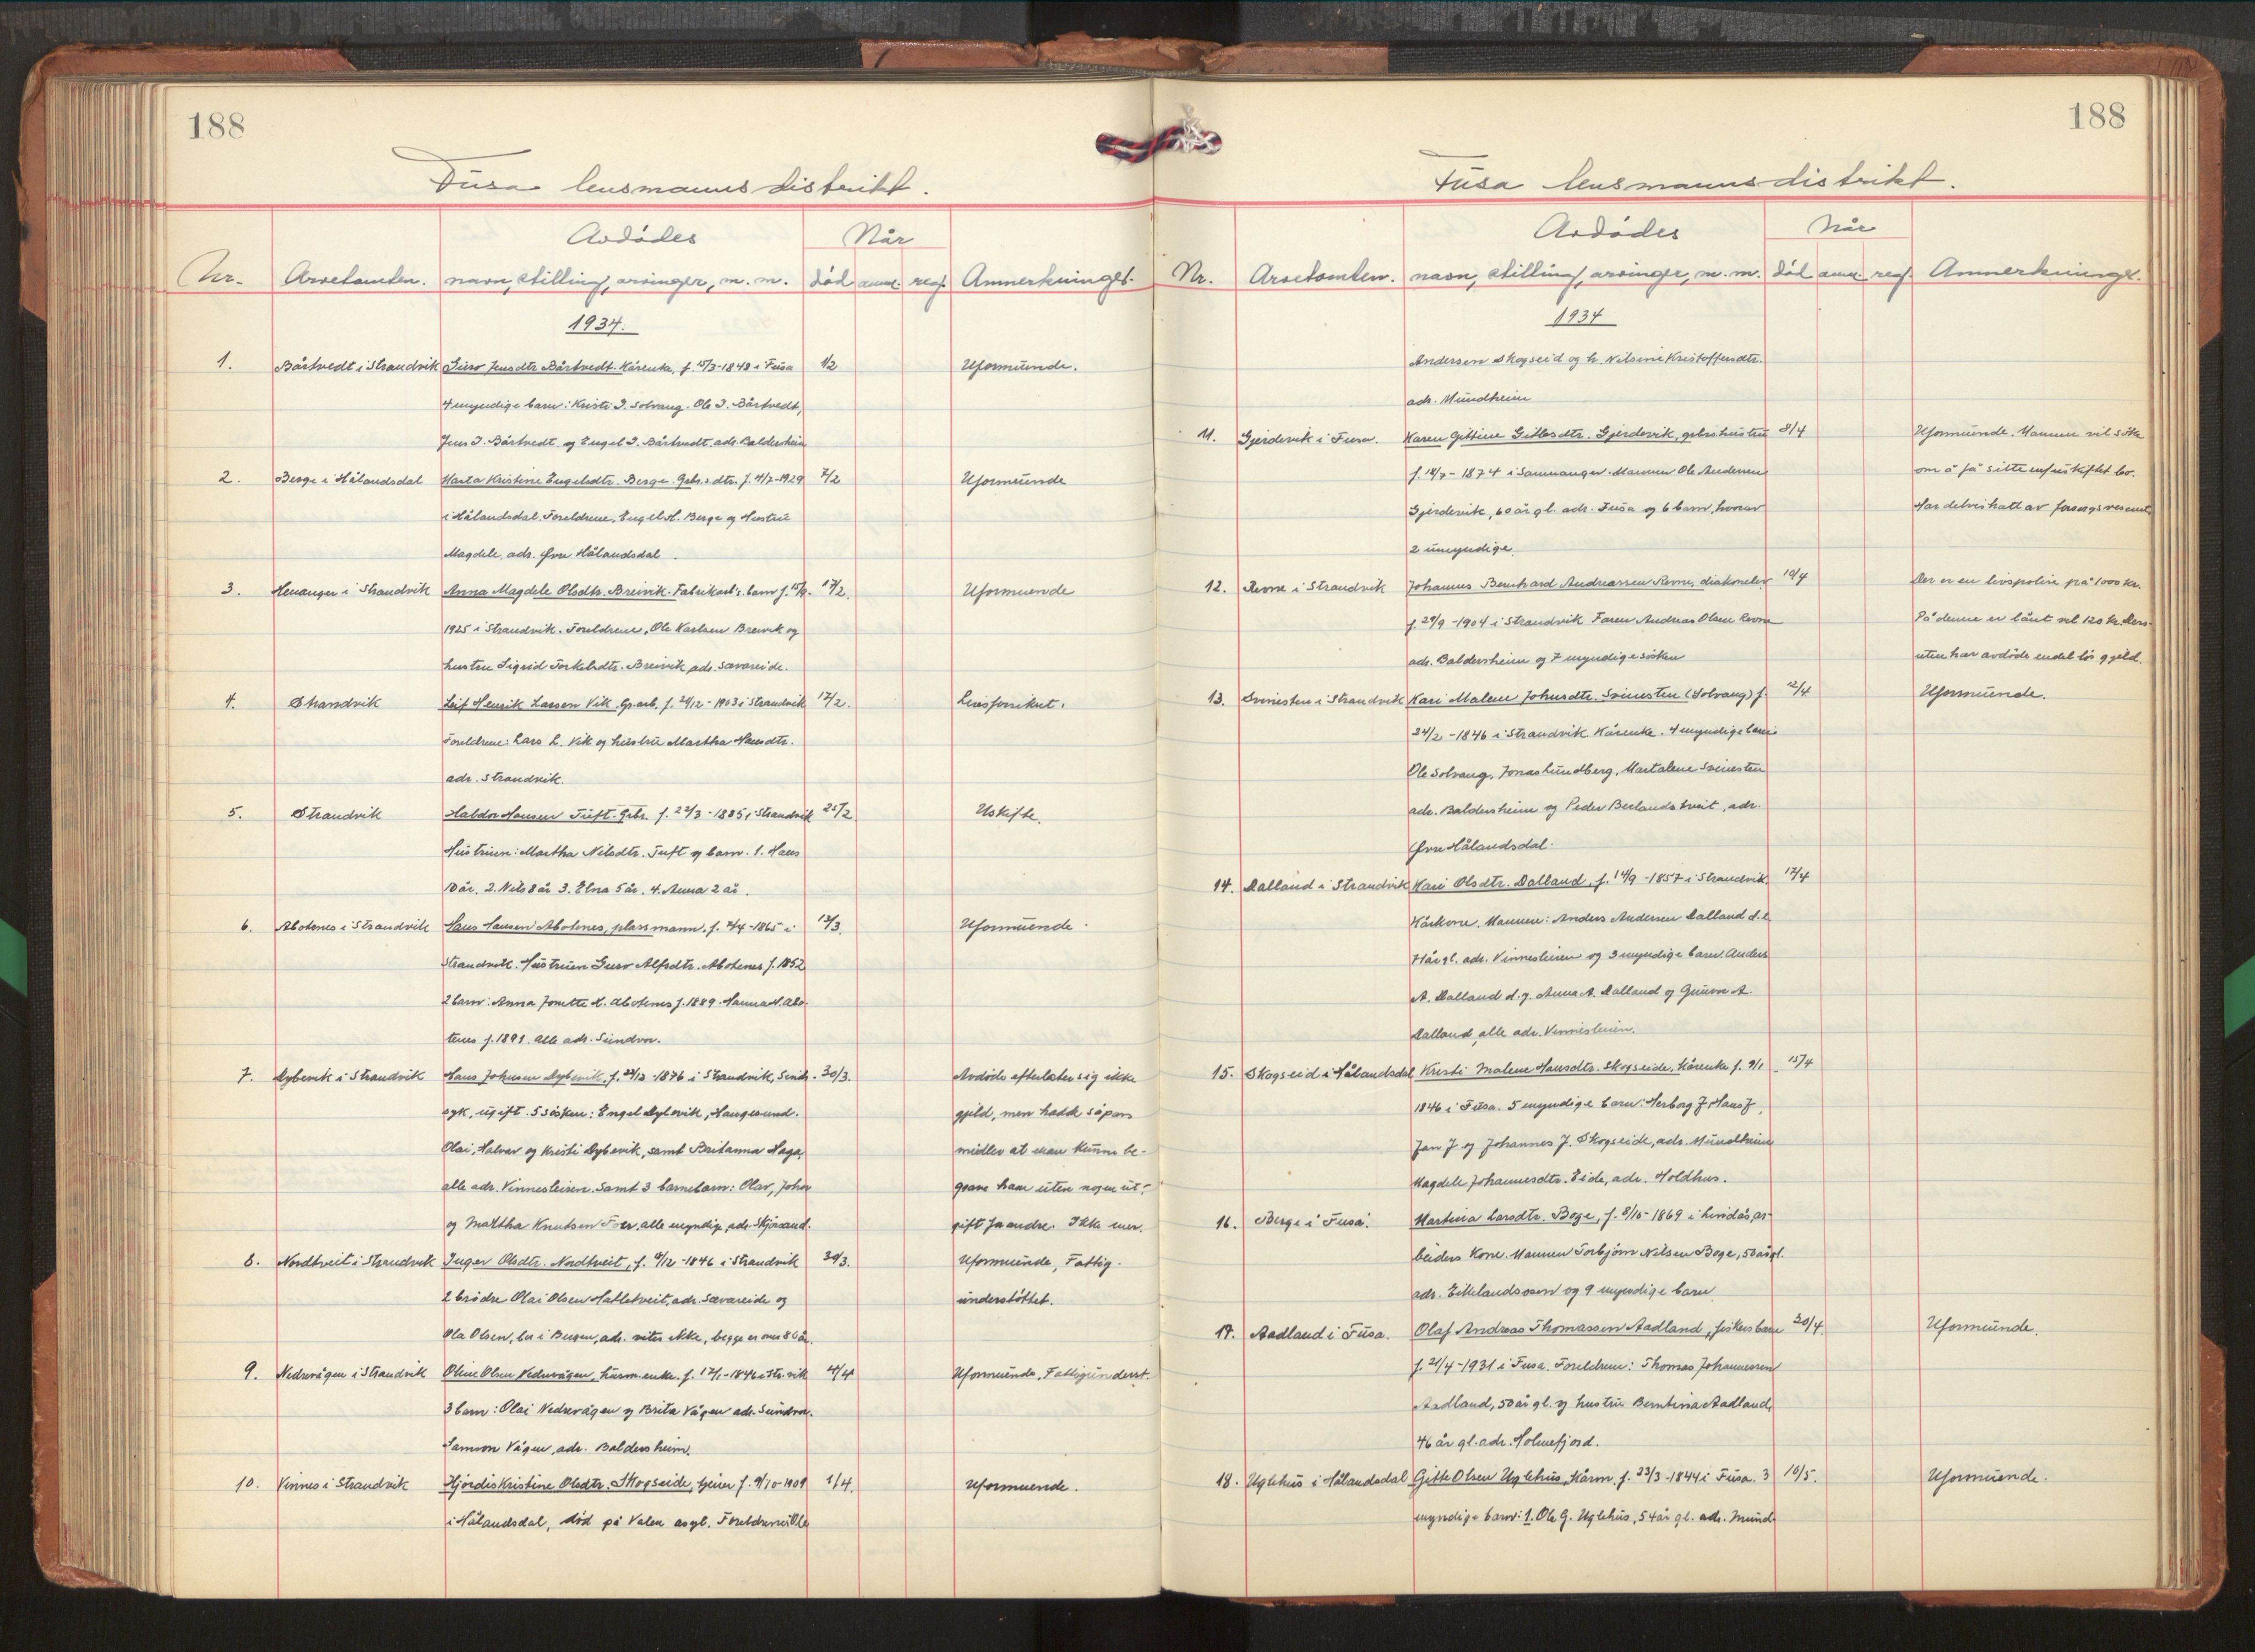 188
Fusa lensmannsdistrikt.
Nr. Arvetomten. Avdödes navn, stilling, arvinger, m. m. Når död anm. reg. Anmerkninger.
1934.
1. Båstvedt i Strandvik Guro Jensdtr. Båstvedt. Kårenke, f. 15/3-1848 i Fusa 1/2 Uformuende.
4 myndige barn: Kristi J. Solvang. Ole J. Båstvedt,
Jens J. Båstvedt og Engel J. Båstvedt. adr. Baldersheim
2. Berge i Hålandsdal Marta Kristine Engelsdtr. Berge. Gbr.s dtr. f. 11/7-1929 7/2 Uformuende
i Hålandsdal. Foreldrene, Engel H. Berge og Hustru
Magdele, adr. Øvre Hålandsdal.
3. Henanger i Strandvik Anna Magdele Olsdtr. Breivik. Fabrikarb's. barn f. 15/9. 17/2. Uformuende
1925 i Strandvik. Foreldrene, Ole Karlsen Breivik og
hustru Sigrid Torkelsdtr. Breivik adr. Sævareide.
4. Strandvik Leif Henrik Larsen Vik, Gr.arb. f. 29/12-1903 i Strandvik 17/2. Livsforsikret.
Foreldrene: Lars L. Vik og hustru Martha Hansdtr.
adr. Strandvik.
5. Strandvik Haldor Hansen Tuft. Grbr. f. 22/3-1885 i Strandvik 25/2 Uskifte.
Hustruen: Martha Nilsdtr. Tuft og barn. 1. Hans
10 år. 2. Nils 8 år 3. Elna 5 år. 4. Anna 2 år.
6. Abotnes i Strandvik Hans Hansen Abotnes, plassmann, f. 2/4-1865 i 13/3. Uformuende.
Strandvik. Hustruen Guro Alfsdtr. Abotnes f. 1852
2 barn: Anna Jonette H. Abotnes f. 1889. Hanna H. Abo-
tnes f. 1891. alle adr. Sundvor.
7. Dybevik i Strandvik Hans Johnsen Dybevik, f. 24/12-1876 i Strandvik, Sinds- 30/3. Avdöde efterlater sig ikke
syk, ugift. 5 sösken: Engel Dybevik, Haugesund. gjeld, men hadde såpass
Olai, Halvor og Kristi Dybevik, samt Britanna Haga, midler at man kunne be-
alle adr. Vinnesleiren. Samt 3 barnebarn: Olav, Johan grave ham uten nogen ut-
og Martha Knutsen alle myndig, adr. Skjøsand. gift fra andre. Ikke mer.
8. Nordtveit i Strandvik Inger Olsdtr. Nordtveit, f. 9/12-1846 i Strandvik 30/3. Uformuende, Fattig-
2 brödre Olai Olsen Hatletveit, adr. Sævareide og understöttet.
Ola Olsen, bor i Bergen, adr. vites ikke, begge er over 80 år.
9. Nedrevågen i Strandvik Oline Olsen Nedrevågen, husm.enke. f. 17/1-1846 i Str.vik 4/4 Uformuende, Fattigunderst.
3 barn: Olai Nedrevågen og Brita Vågen adr. Sundvor.
Samson Vågen, adr. Baldersheim.
10. Vinnes i Strandvik Hjördis Kristine Olsdtr. Skogseide, tjener f. 9/10-1909 1/4. Uformuende.
i Hålandsdal, död på Valen asyl. Foreldrene: Ole
188
Fusa lensmannsdistrikt.
Nr. Arvetomten. Avdödes navn, stilling, arvinger, m. m. Når död anm. reg. Anmerkninger.
1934
Andersen Skogseid og h. Nilsine Kristoffersdtr.
adr. Mundheim
11. Gjerdevik i Fusa. Karen Gittine Gitlesdtr. Gjerdevik, gbrs. hustru 8/4 Uformuende. Mannen vil söke
f. 18/7-1874 i Samnanger. Mannen Ole Andersen om å få sitte i uskiftet bo.
Gjerdevik, 60 år gl. adr. Fusa og 6 barn, hvorav Har delvis hatt av forsorgsvesenet.
2 umyndige.
12. Revne i Strandvik Johannes Bernhard Andreassen Revne, diakonelev 10/4 Der er en livspolise på 1000 kr.
f. 29/9-1904 i Strandvik Faren Andreas Olsen Revne På denne er lånt vel 120 kr. Dess-
adr. Baldersheim og 7 myndige sösken uten har avdöde endel lös gjeld.
13. Svinesten i Strandvik Kari Malene Johnsdtr. Svinesten (Solvang) f. 12/4 Uformuende.
24/2-1846 i Strandvik Kårenke. 4 myndige barn:
Ole Solvang, Jonas Lundberg, Martalene Svinesten
adr. Baldersheim og Peder Berlandstveit, adr.
Øvre Hålandsdal.
14. Dalland i Strandvik Kari Olsdtr. Dalland, f. 14/9-1857 i Strandvik 17/4
Kårkone. Mannen: Anders Andersen Dalland d.e.
71 år gl. adr. Vinnesleiren og 3 myndige barn. Anders
A. Dalland d.y. Anna A. Dalland og Gunvor A.
Dalland, alle adr. Vinnesleiren.
15. Skogseid i Hålandsdal Kristi Malene Hansdtr. Skogseide, kårenke f. 9/1 15/4
1846 i Fusa. 5 myndige barn: Herborg J, Hans J,
Jan J og Johannes J. Skogseide, adr. Mundheim
Magdele Johannesdtr. Eide, adr. Holdhus.
16. Berge i Fusa. Martina Larsdtr. Boge, f. 8/10-1869 i Lindås, ar-
beiders Kone. Mannen Torbjörn Nilsen Boge, 50 år gl.
adr. Eikelandsosen og 9 myndige barn
17. Aadland i Fusa. Olaf Andreas Thomassen Aadland, fiskers barn 20/4. Uformuende.
f. 21/4-1931 i Fusa. Foreldrene: Thomas Johannessen
Aadland, 50 år gl. og hustru Berntina Aadland,
46 år gl. adr. Holmefjord.
18. Uglehus i Hålandsdal Gitle Olsen Uglehus, Kårm. f. 23/3-1844 i Fusa. 3 10/5. Uformuende.
myndige barn: 1. Ole G. Uglehus, 54 år gl. adr. Mund-